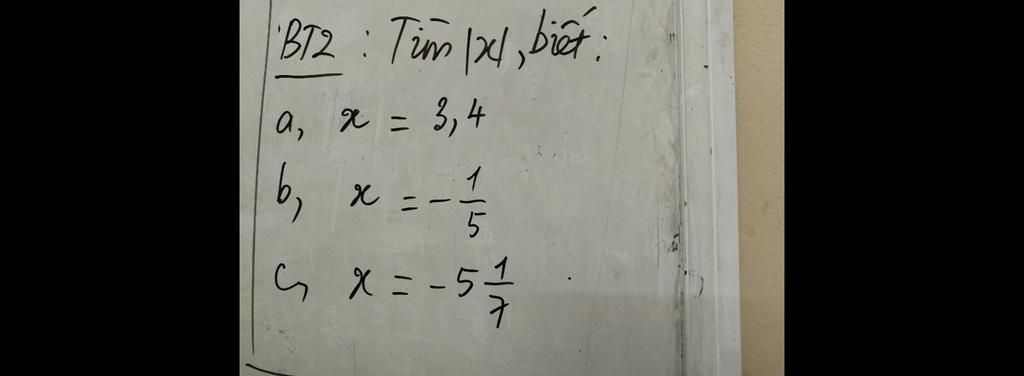 BT2 : Tìm |x|, biết:
a, x = 3,4
b, x = - 1/5
c, x = - 5 1/7